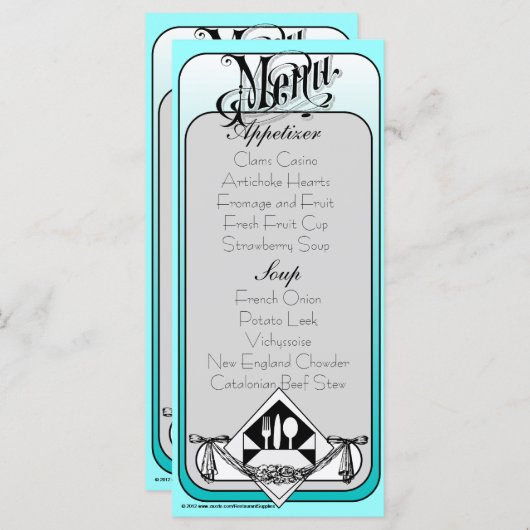 Menu
Appetizer
Clams Casino
Artichoke Hearts
Fromage and Fruit
Fresh Fruit Cup
Strawberry Soup
Soup
French Onion
Potato Leek
Vichyssoise
New England Chowder
Catalonian Beef Stew
© 2012 www.zazzle.com/RestaurantSupplies
© 2012